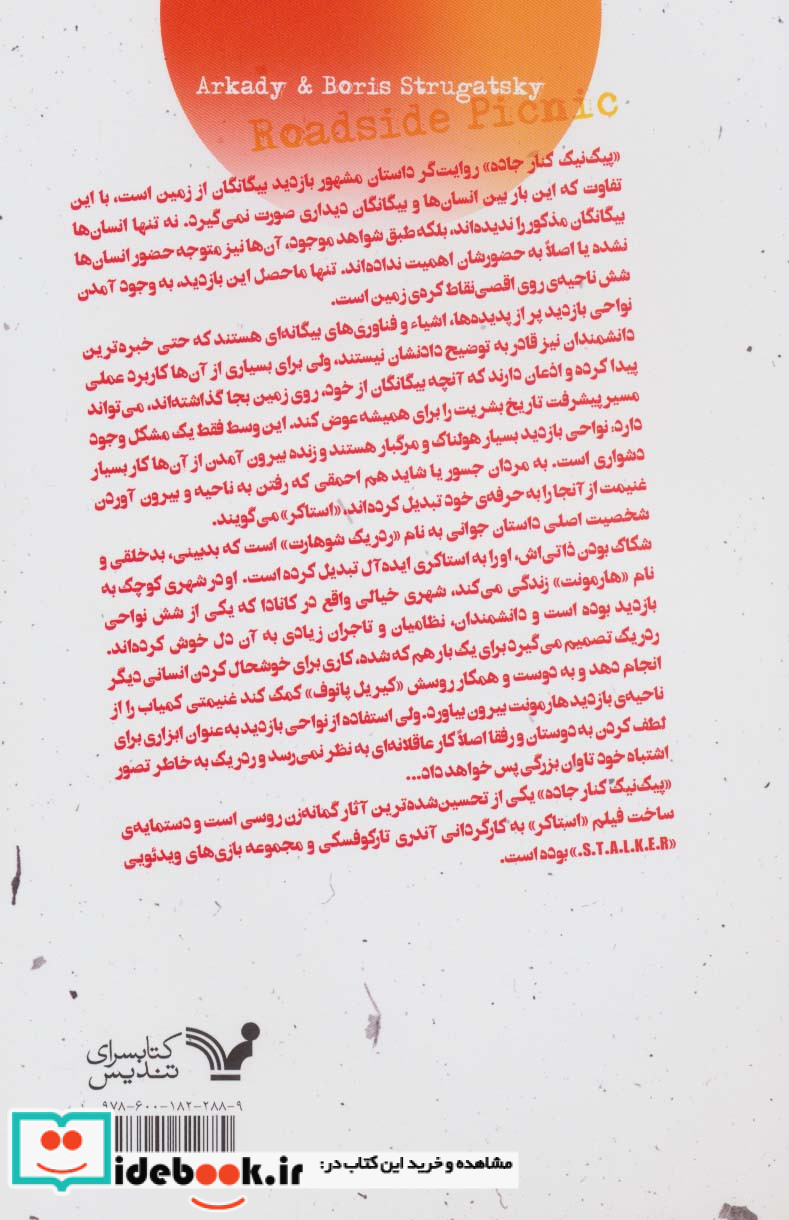 Arkady & Boris Strugatsky
Roadside Picnic
«پیک‌نیک کنار جاده» روایت‌گر داستان مشهور بازدید بیگانگان از زمین است، با این
تفاوت که این بار بین انسان‌ها و بیگانگان دیداری صورت نمی‌گیرد. نه تنها انسان‌ها
بیگانگان مذکور را ندیده‌اند، بلکه طبق شواهد موجود، آن‌ها نیز متوجه حضور انسان‌ها
نشده یا اصلاً به حضورشان اهمیت نداده‌اند. تنها ماحصل این بازدید، به وجود آمدن
شش ناحیه‌ی روی اقصی‌نقاط کره‌ی زمین است.
نواحی بازدید پر از پدیده‌ها، اشیاء و فناوری‌های بیگانه‌ای هستند که حتی خبره‌ترین
دانشمندان نیز قادر به توضیح دادنشان نیستند، ولی برای بسیاری از آن‌ها کاربرد عملی
پیدا کرده و اذعان دارند که آنچه بیگانگان از خود، روی زمین بجا گذاشته‌اند، می‌تواند
مسیر پیشرفت تاریخ بشریت را برای همیشه عوض کند. این وسط فقط یک مشکل وجود
دارد، نواحی بازدید بسیار هولناک و مرگبار هستند و زنده بیرون آمدن از آن‌ها کار بسیار
دشواری است. به مردان جسور یا شاید هم احمقی که رفتن به ناحیه و بیرون آوردن
غنیمت از آنجا را به حرفه‌ی خود تبدیل کرده‌اند، «استاکر» می‌گویند.
شخصیت اصلی داستان جوانی به نام «ردریک شوهارت» است که بدبینی، بدخلقی و
شکاک بودن ذاتی‌اش، او را به استاکری ایده‌آل تبدیل کرده است. او در شهری کوچک به
نام «هارمونت» زندگی می‌کند، شهری خیالی واقع در کانادا که یکی از شش نواحی
بازدید بوده است و دانشمندان، نظامیان و تاجران زیادی به آن دل خوش کرده‌اند.
ردریک تصمیم می‌گیرد برای یک بار هم که شده، کاری برای خوشحال کردن انسانی دیگر
انجام دهد و به دوست و همکار روسش «کیریل پانوف» کمک کند غنیمتی کمیاب را از
ناحیه‌ی بازدید هارمونت بیرون بیاورد. ولی استفاده از نواحی بازدید به عنوان ابزاری برای
لطف کردن به دوستان و رفقا اصلاً کار عاقلانه‌ای به نظر نمی‌رسد و ردریک به خاطر تصور
اشتباه خود تاوان بزرگی پس خواهد داد...
«پیک‌نیک کنار جاده» یکی از تحسین‌شده‌ترین آثار گمانه‌زن روسی است و دستمایه‌ی
ساخت فیلم «استاکر» به کارگردانی آندری تارکوفسکی و مجموعه بازی‌های ویدئویی
«S.T.A.L.K.E.R.» بوده است.
کتابسرای
تندیس
۹۷۸-۶۰۰-۱۸۲-۲۸۸-۹
مشاهده و خرید این کتاب در:
idebook.ir